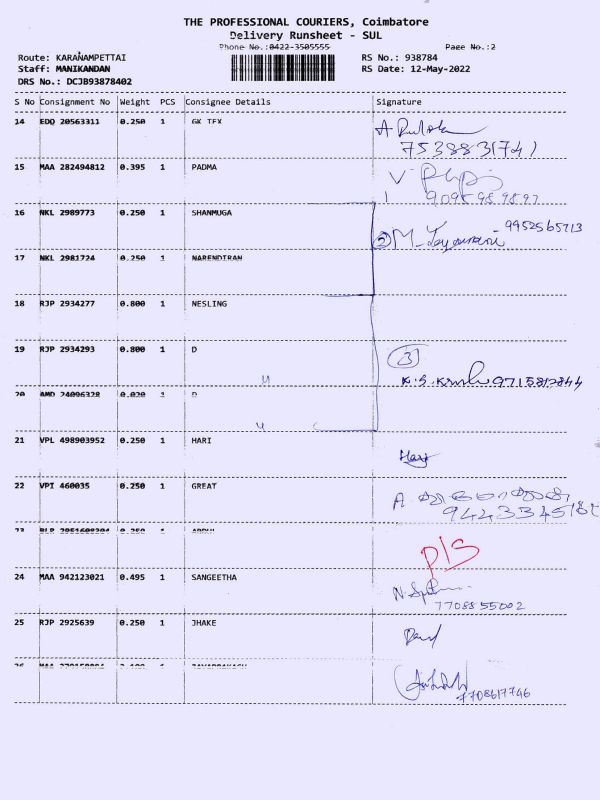 THE PROFESSIONAL COURIERS, Coimbatore
Delivery Runsheet - SUL
Phone No.:0422-3505555 Page No.:2
Route: KARANAMPETTAI RS No.: 938784
Staff: MANIKANDAN RS Date: 12-May-2022
DRS No.: DCJB93878402
S No Consignment No Weight PCS Consignee Details Signature
14 EDQ 20563311 0.250 1 GK TEX
7538831741
15 MAA 282494812 0.395 1 PADMA
9095989897
16 NKL 2989773 0.250 1 SHANMUGA 9952565713
17 NKL 2981724 0.250 1 NARENDIRAN
18 RJP 2934277 0.800 1 NESLING
19 RJP 2934293 0.800 1 D 3
9715812844
20 AMD 24096328 0.020 1 D
21 VPL 498903952 0.250 1 HARI
Hari
22 VPI 460035 0.250 1 GREAT
23
P/S
24 MAA 942123021 0.495 1 SANGEETHA
7708855002
25 RJP 2925639 0.250 1 JHAKE
26
7708617746